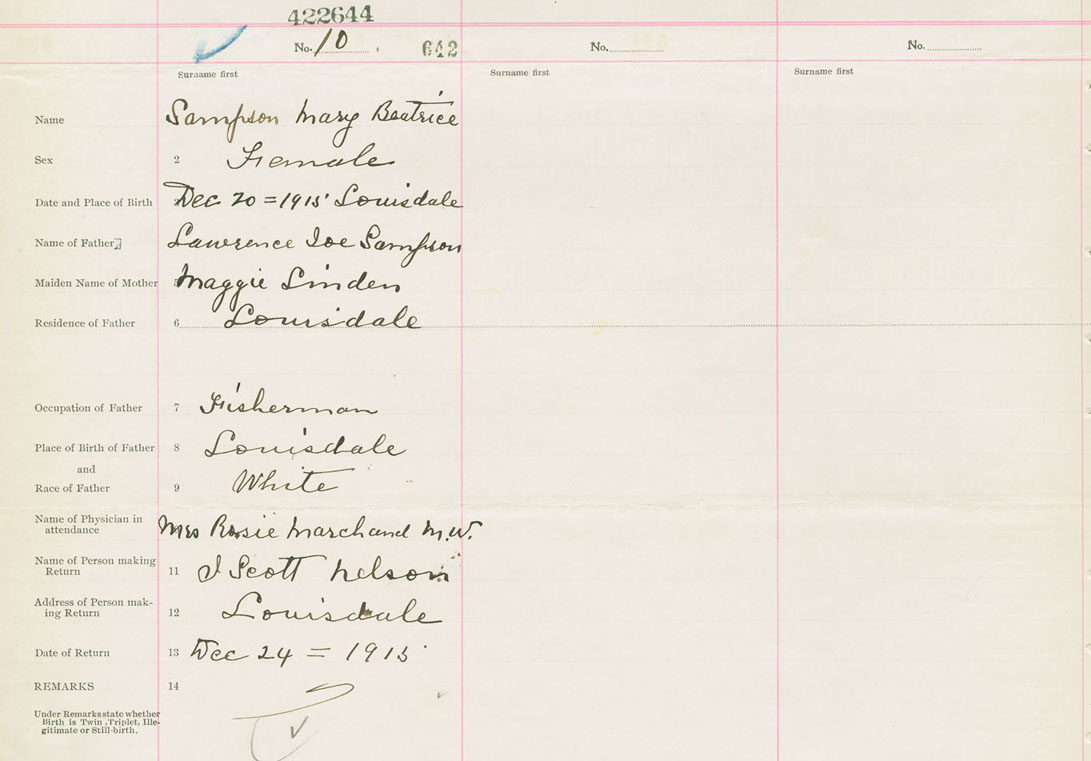 422644
No. 10 642 No. No.
Surname first Surname first Surname first
Name Sampson Mary Beatrice
Sex 2 Female
Date and Place of Birth Dec 20 = 1915 Louisdale
Name of Father Lawrence Joe Sampson
Maiden Name of Mother Maggie Linden
Residence of Father 6 Louisdale
Occupation of Father 7 Fisherman
Place of Birth of Father 8 Louisdale
and
Race of Father 9 White
Name of Physician in
attendance Mrs Rosie Marchand M.W.
Name of Person making
Return 11 J Scott Nelson
Address of Person mak-
ing Return 12 Louisdale
Date of Return 13 Dec 24 = 1915
REMARKS 14
Under Remarks state whether
Birth is Twin, Triplet, Ille-
gitimate or Still-birth.